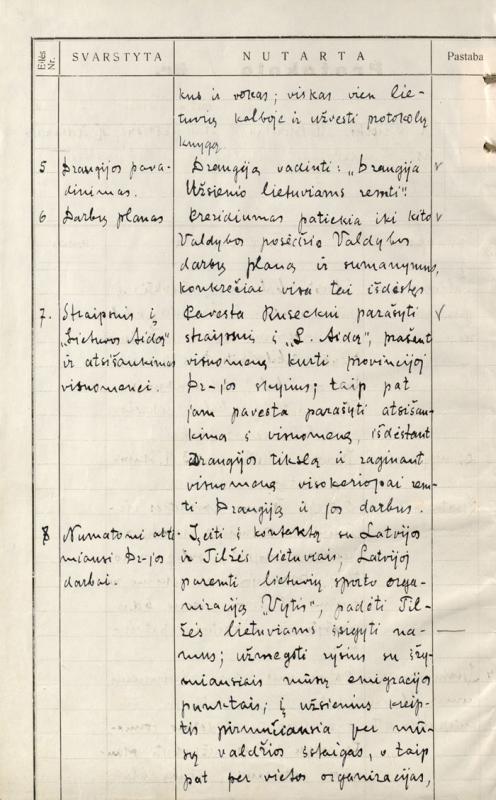 Eilės Nr.
SVARSTYTA
NUTARTA
Pastaba
kus ir vokas; viskas vien lie-
tuvių kalboje ir užvesti protokolų
knygą.
5 Draugijos pava-
dinimas.
Draugiją vadinti: „Draugija
Užsienio lietuviams remti".
v
6 Darbų planas
Prezidiumas patiekia iki kito
Valdybos posėdžio Valdybos
darbų planą ir sumanymus,
konkrečiai visa tai išdėstęs
v
7. Straipsnis į
„Lietuvos Aidą"
ir atsišaukimas
visuomenei.
Pavesta Ruseckui parašyti
straipsnį į „L. Aidą", prašant
visuomenę kurti provincijoj
Dr-jos skyrius; taip pat
jam pavesta parašyti atsišau-
kimą į visuomenę, išdėstant
Draugijos tikslą ir raginant
visuomenę visokeriopai rem-
ti Draugiją ir jos darbus.
v
8 Numatomi arti-
miausi Dr-jos
darbai.
Įeiti į kontaktą su Latvijos
ir Tilžės lietuviais; Latvijoj
paremti lietuvių sporto orga-
nizaciją „Vytis", padėti Til-
žės lietuviams įsigyti na-
mus; užmegsti ryšius su žy-
miausiais mūsų emigracijos
punktais; į užsienius kreip-
tis pirmučiausia per mū-
sų valdžios įstaigas, o taip
pat per vietos organizacijas,
—